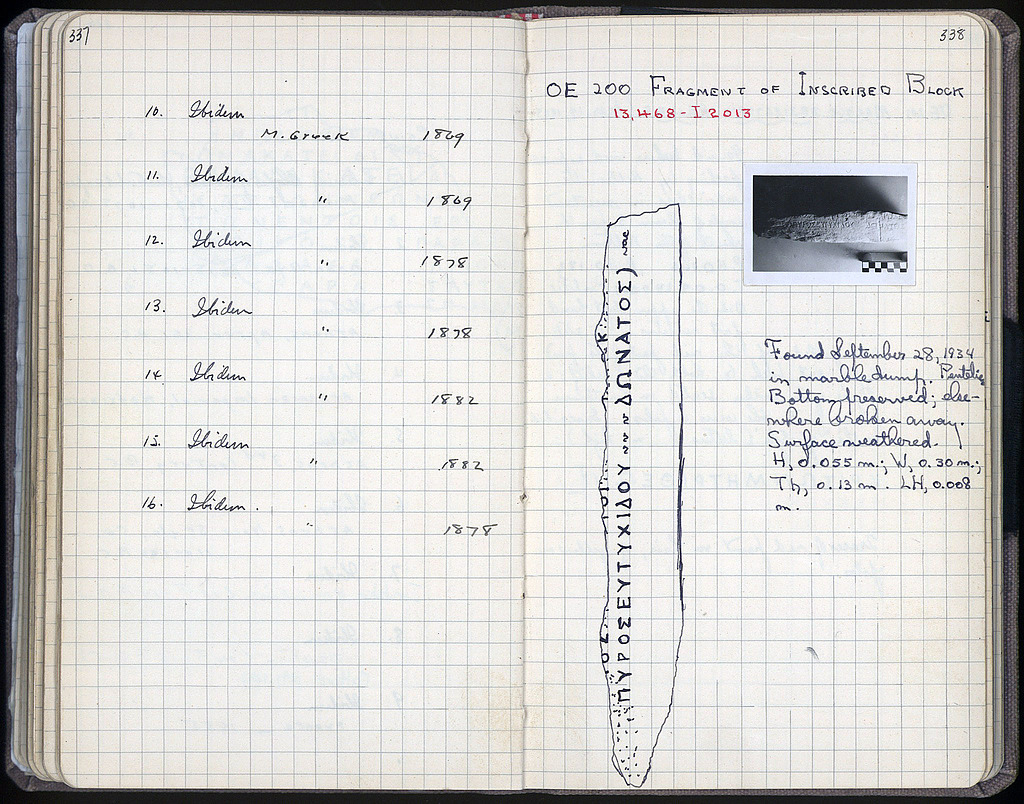 337
10. Ibidem
M. Greek 1869
11. Ibidem
" 1869
12. Ibidem
" 1878
13. Ibidem
" 1878
14 Ibidem
" 1882
15. Ibidem
" 1882
16. Ibidem.
" 1878
338
OE 200 FRAGMENT OF INSCRIBED BLOCK
13,468-I 2013
ΠΥΡΟΣΕΥΤΥΧΙΔΟΥ ~~~ ΔΩΝΑΤΟΣ) vac
Found September 28, 1934
in marble dump. Pentelic
Bottom preserved; else-
where broken away.
Surface weathered.
H, 0.055 m.; W, 0.30 m.;
Th, 0.13 m. LH, 0.008
m.